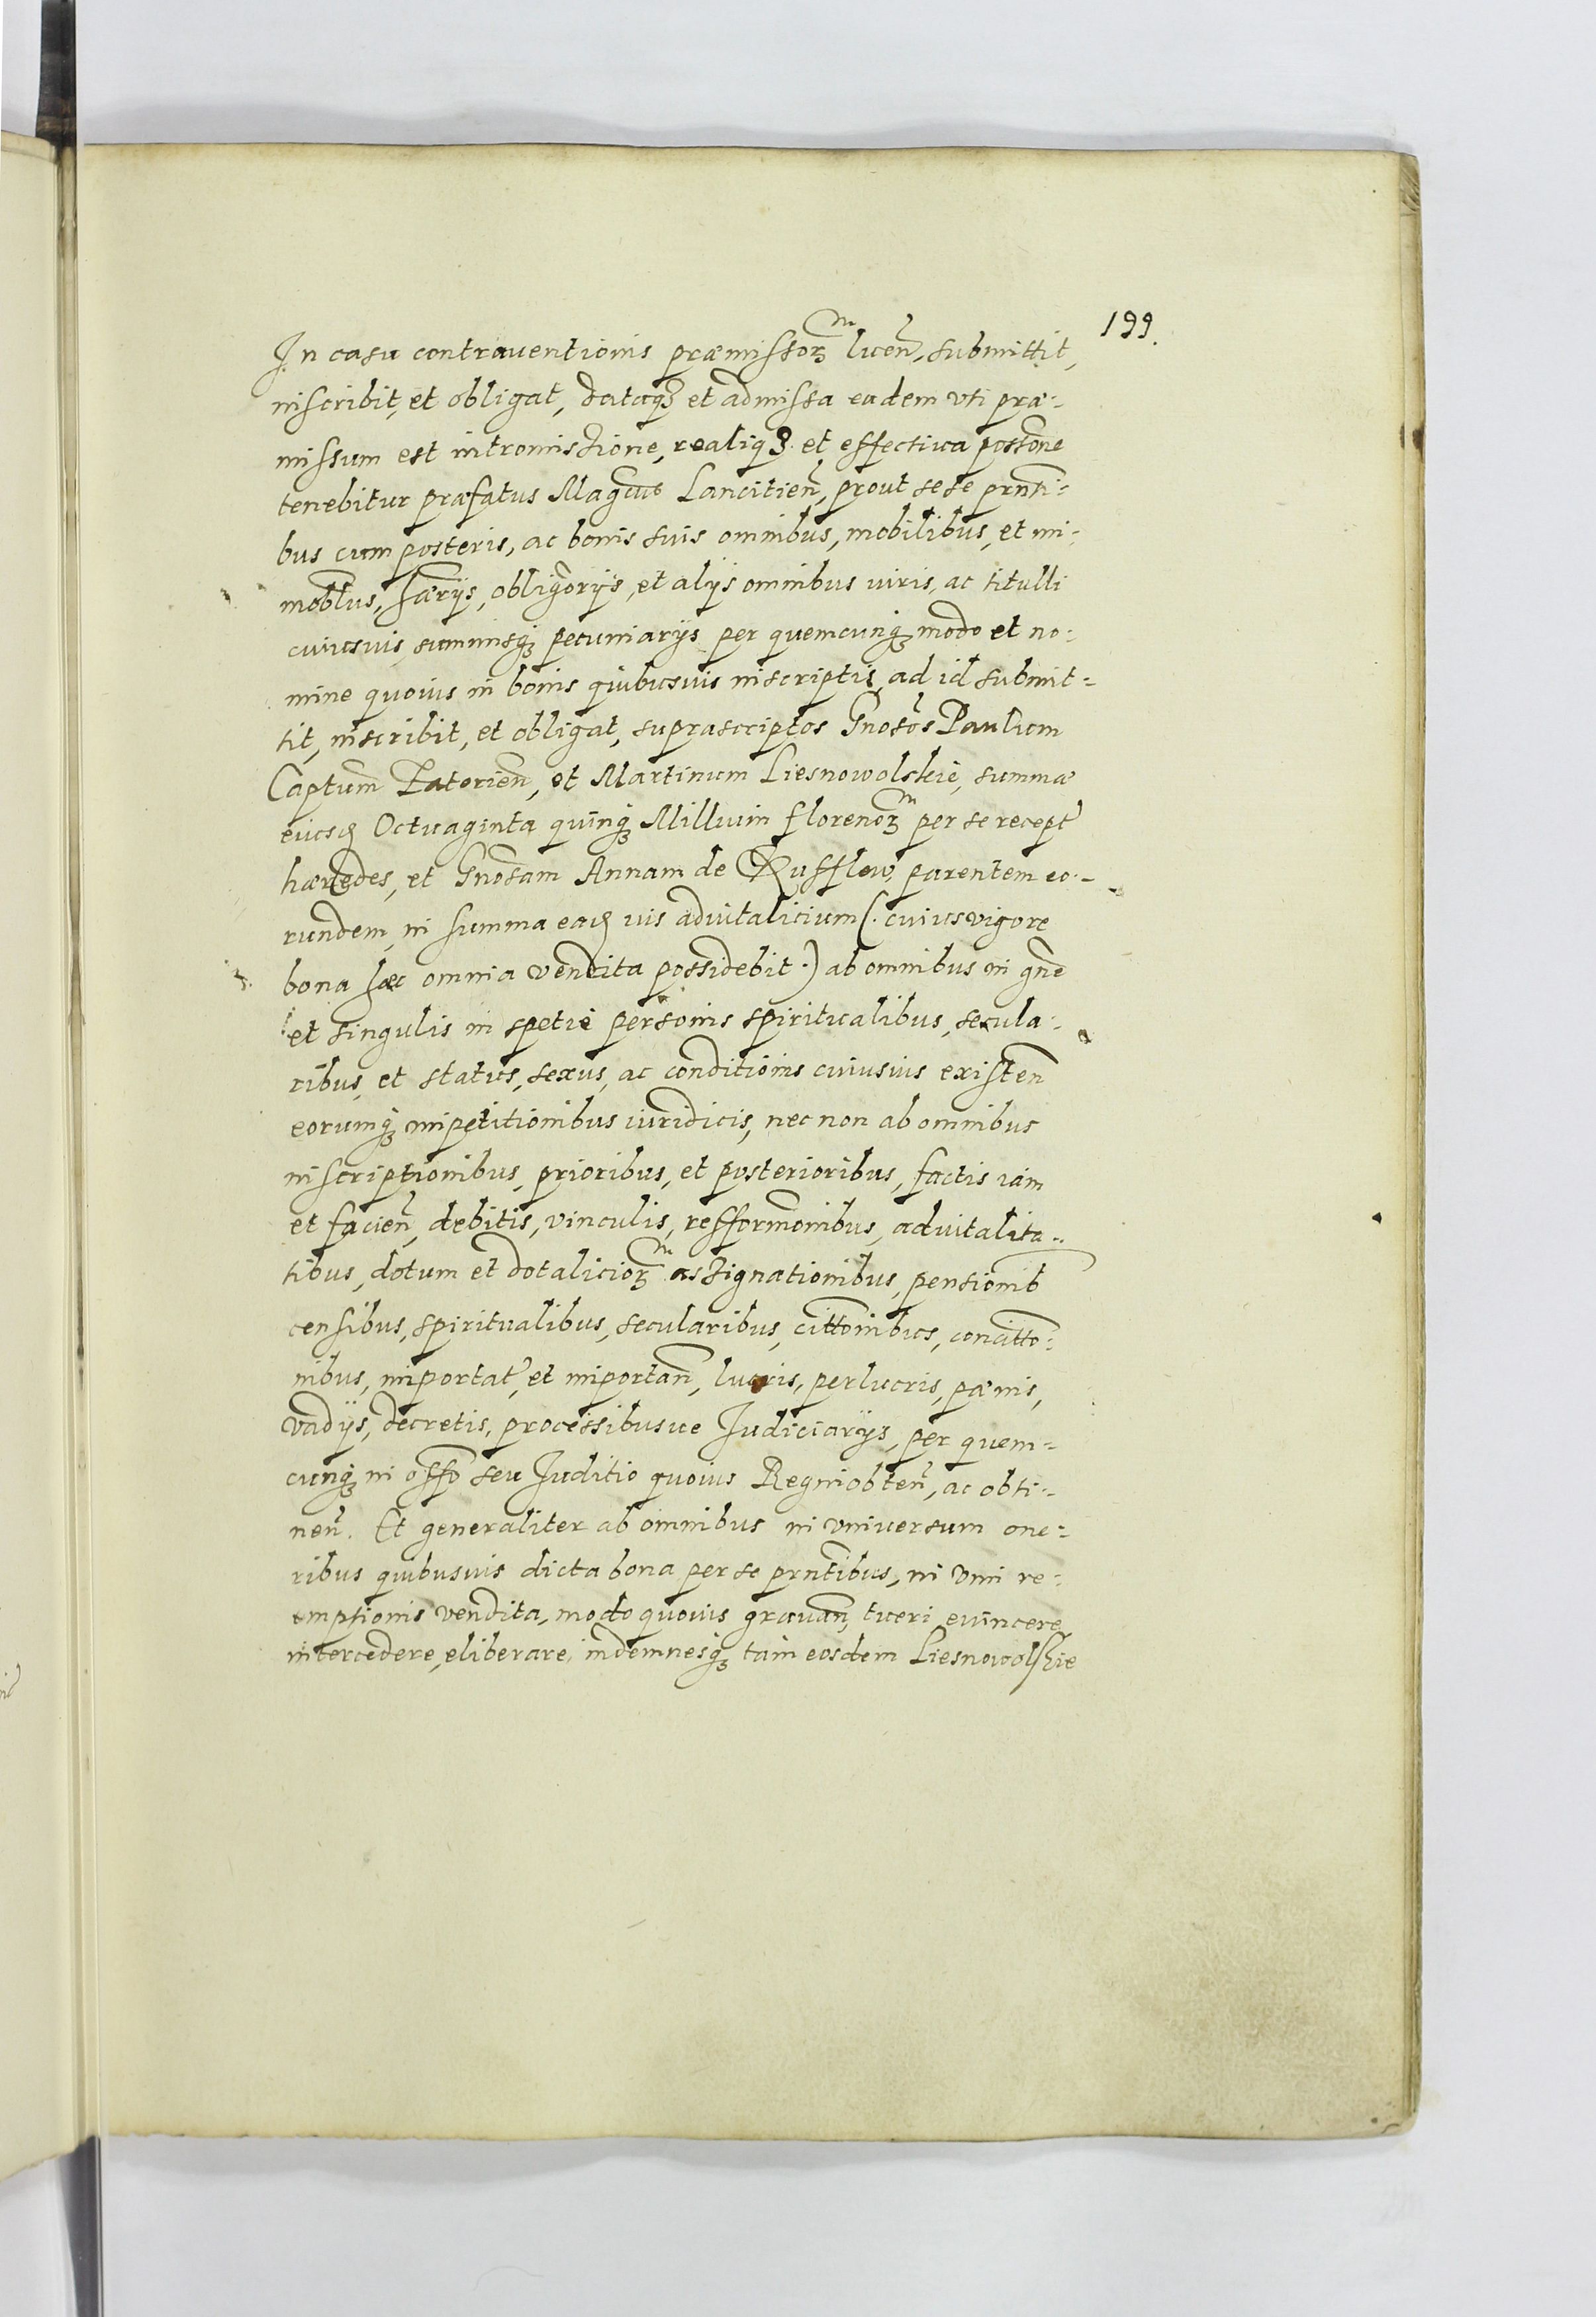 199.
In casu contraventionis præmissorꝫ lucen̄, submittit,
inscribit, et obligat, dataqꝫ et admissa eadem vti præ-
missum est intromissione, realiqꝫ et effectiua possōne
tenebitur præfatus Magcus Lancitien̄, prout sese prnti-
bus cum posteris, ac bonis suis omnibus, mobilibus, et im-
moblbus, hæriis, obligorijs, et alijs omnibus iuris, ac titulli
cuiusuis, summisqꝫ pecuniarijs per quemcunqꝫ modo et no-
mine quouis in bonis quibusuis inscriptis, ad id submit-
tit, inscribit, et obligat, suprascriptos Gnosos Paulum
Captum Zatorien̄, et Martinum Liesnowolskie, summæ
eiusd Octuaginta quinqꝫ Millium florenorꝫ per se recept
hæredes, et Gnosam Annam de Rufflow, parentem eo-
rundem, in summa ead ius aduitalicium (. cuius vigore
bona hæc omnia vendita possidebit .) ab omnibus in gne
et singulis in spetie personis spiritualibus, secula-
ribus, et status, sexus, ac conditionis cuiusuis existen̄
eorumqꝫ impetitionibus iuridicis, nec non ab omnibus
inscriptionibus, prioribus, et posterioribus, factis iam
et facien̄, debitis, vinculis, refformonibus, aduitalita-
tibus, dotum et dotaliciorꝫ assignationibus, pensionib
censibus, spiritualibus, secularibus, cittonibus, concitto-
nibus, importat, et importan̄, lucris, perlucris, pænis,
vadijs, decretis, processibusue Iudiciarijs, per quem-
cunqꝫ in offo seu Iuditio quouis Regni obten̄, ac obti-
nen̄. Et generaliter ab omnibus in vniuersum one-
ribus quibusuis dicta bona per se prntibus, in vim re-
emptionis vendita, modo quouis grauan̄, tueri, euincere
intercedere, eliberare, indemnesqꝫ tam eosdem Liesnowolskie